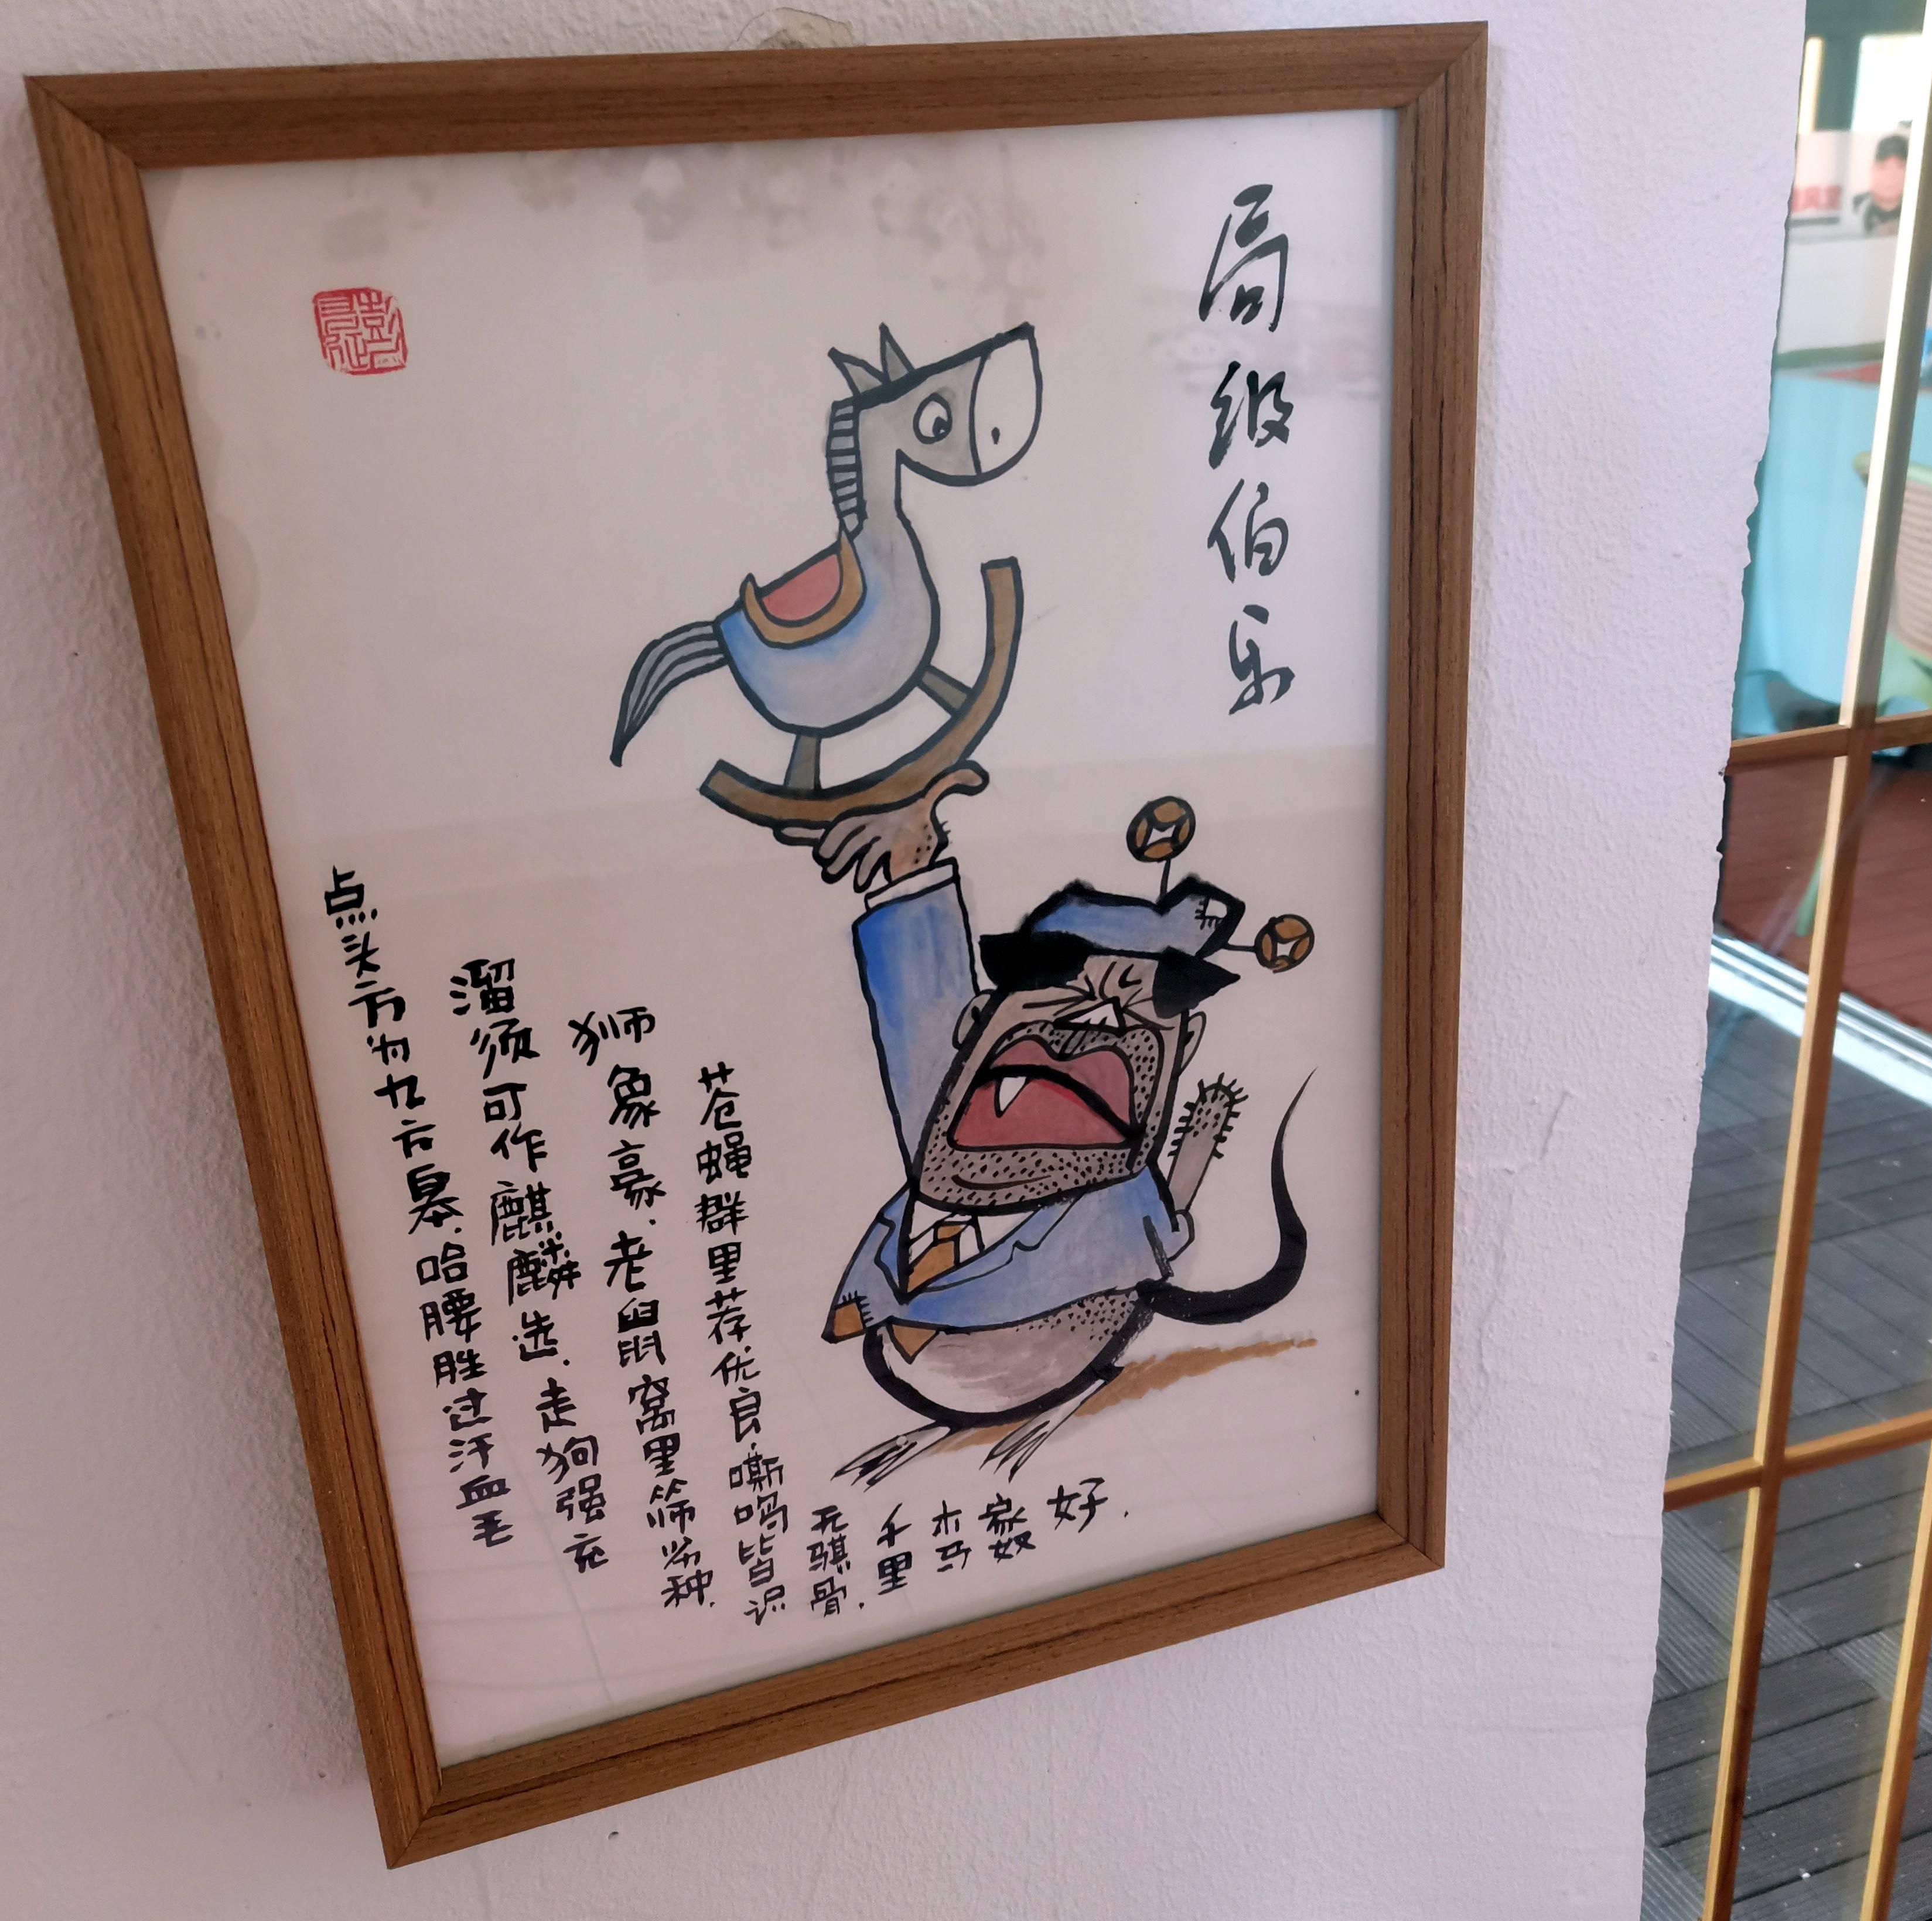 局级伯乐
点头方为九方皋.哈腰胜过汗血毛
溜须可作麒麟选.走狗强充
狮象豪.老鼠窝里筛劣种.
苍蝇群里荐优良.嘶鸣皆识
无骐骨.
千里
木马
家奴
好.